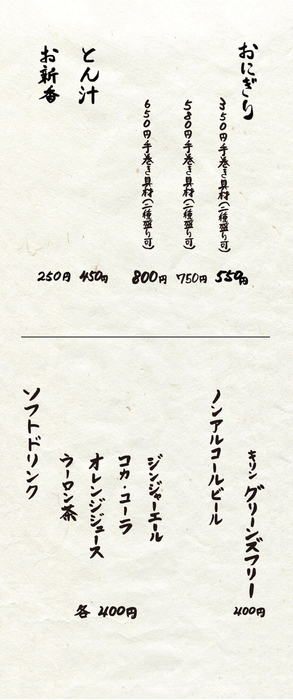 おにぎり
350円手巻き具材(二種盛り可) 550円
580円手巻き具材(二種盛り可) 750円
650円手巻き具材(二種盛り可) 800円
とん汁 450円
お新香 250円
キリン グリーンズフリー 400円
ノンアルコールビール
ジンジャーエール
コカ・コーラ
オレンジジュース
ウーロン茶
各 400円
ソフトドリンク